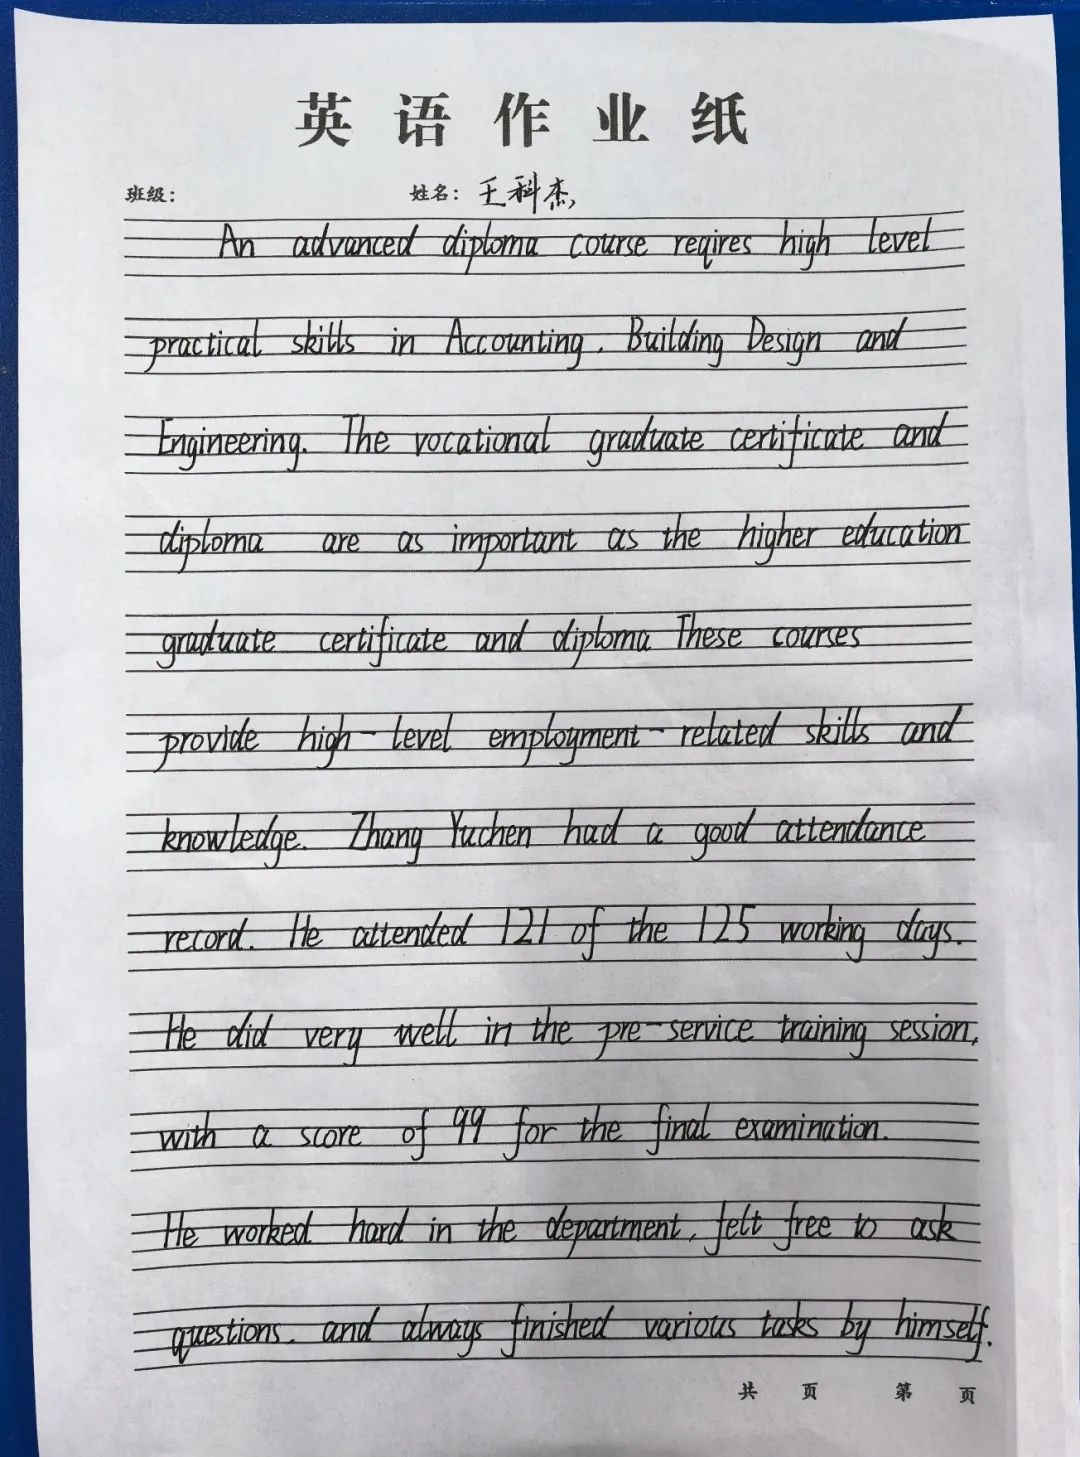 英语作业纸
班级: 姓名: 王科杰
An advanced diploma course reqires high level
practical skills in Accounting. Building Design and
Engineering. The vocational graduate certificate and
diploma are as important as the higher education
graduate certificate and diploma These courses
provide high-level employment-related skills and
knowledge. Zhang Yuchen had a good attendance
record. He attended 121 of the 125 working days.
He did very well in the pre-service training session,
with a score of 99 for the final examination.
He worked hard in the department, felt free to ask
questions. and always finished various tasks by himself.
共 页 第 页